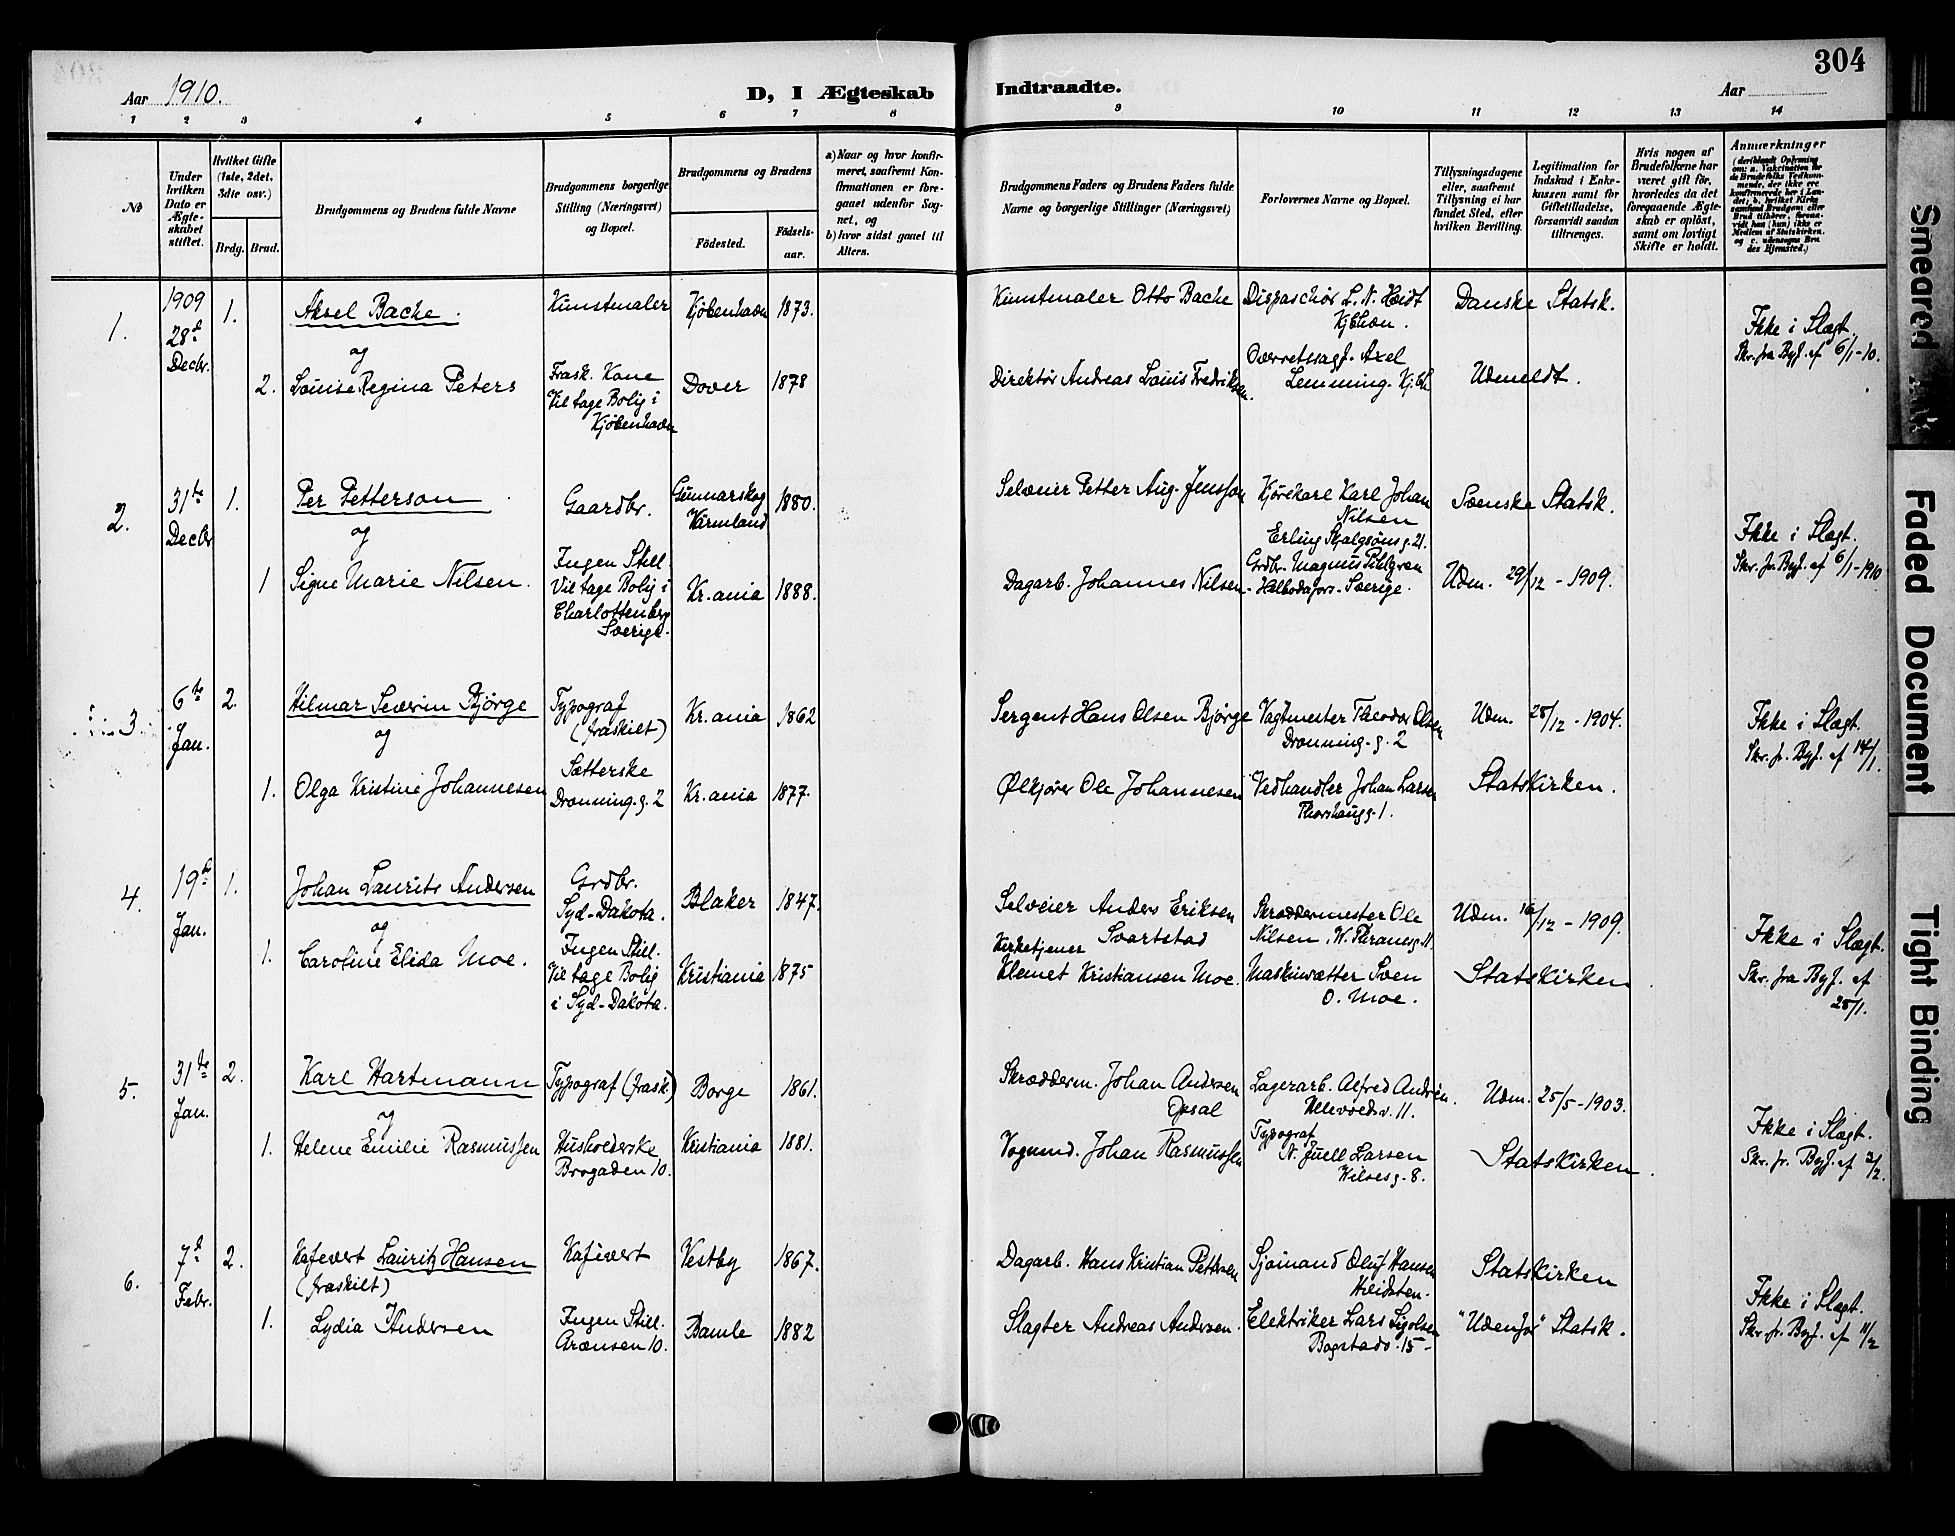 304
Aar 1910.
D, I Ægteskab
Indtraadte.
Aar
1 2 3 4 5 6 7 8 9 10 11 12 13 14
№
Under hvilken Dato er Ægteskabet stiftet.
Hvilket Gifte (1ste, 2det, 3die osv.)
Brdg. Brud.
Brudgommens og Brudens fulde Navne
Brudgommens borgerlige Stilling (Næringsvei) og Bopæl.
Brudgommens og Brudens
Födested.
Födselsaar.
a) Naar og hvor konfirmeret, saafremt Konfirmationen er foregaaet udenfor Sognet, og
b) hvor sidst gaaet til Alters.
Brudgommens Faders og Brudens Faders fulde Navne og borgerlige Stillinger (Næringsvei)
Forlovernes Navne og Bopæl.
Tillysningsdagene eller, saafremt Tillysning ei har fundet Sted, efter hvilken Bevilling.
Legitimation for Indskud i Enkekassen samt for Giftetilladelse, forsaavidt saadan tiltrænges.
Hvis nogen af Brudefolkene har været gift för, hvorledes da det foregaaende Ægteskab er oplöst, samt om lovligt Skifte er holdt.
Anmærkninger
1.
1909
28d
Decbr.
1.
Aksel Bache.
Kunstmaler
Kjöbenhavn
1873.
Kunstmaler Otto Bache
Dispaschör L. N. Hvidt
Kjbhvn.
Danske Statsk.
og
2.
Louise Regina Peters
Frask. Kone
Vil tage Bolig i
Kjöbenhavn
Dover
1878
Direktör Andreas Louis Fredriksen.
Overretssagf. Axel
Lemming. Kj.bh
Udmeldt.
Ikke i Slægt.
Skr. fra Byf. af 6/1-10.
2.
31te
Decbr
1.
Per Petterson
Gaardbr.
Gunnarskog
Värmland
1880.
Selveier Petter Aug. Jonsson
Kjörekarl Karl Johan
Nilsen
Erling Skjalgsöns g. 21.
Svenske Statsk.
og
1
Signe Marie Nilsen.
Ingen Still.
Vil tage Bolig i
Charlottenberg
Sverige.
Kr.ania
1888.
Dagarb. Johannes Nilsen
Grdbr. Magnus Pihlgren
Sverige.
Udm. 29/12 - 1909.
Ikke i Slægt.
Skr. fr. Byf. af 6/1-1910
3.
6te
Jan.
2.
Hilmar Severin Björge
Typograf
(fraskilt)
Kr.ania
1862
Sergent Hans Olsen Björge
Vagtmester Theodor Olsen
Dronning. g. 2
Udm. 28/12 - 1904.
og
1.
Olga Kristine Johannesen
Sætterske
Dronning. g. 2
Kr.ania
1877.
Ølkjörer Ole Johannesen
Vedhandler Johan Larsen
Thorshaug g. 1.
Statskirken.
Ikke i Slægt.
Skr. fr. Byf. af 14/1.
4.
19de
Jan.
1.
Johan Laurits Andersen
Grdbr.
Syd-Dakota.
Blaker
1847.
Selveier Anders Eriksen
Svartstad
Skræddermester Ole
Nilsen, W. Thranesg. 11.
Udm. 16/12 - 1909.
og
1.
Caroline Elida Moe.
Ingen Still.
Vil tage Bolig
i Syd-Dakota.
Kristiania
1875
Kirketjener
Klemet Kristiansen Moe.
Maskinsætter Sven
O. Moe.
Statskirken
Ikke i Slægt.
Skr. fra Byf. af
25/1.
5.
31te
Jan.
2.
Karl Hartmann
Typograf (frask.)
Borge
1861.
Skrædderm. Johan Andersen
Opsal
Lagerarb. Alfred Andrén.
11.
Udm. 25/5 - 1903.
og
1.
Helene Emilie Rasmussen
Husholderske
Brogaden 10.
Kristiania
1881.
Vognmd. Johan Rasmussen
Typograf
N. Juell Larsen
Nilsesg. 8.
Statskirken.
Ikke i Slægt.
Skr. fr. Byf. af 2/2.
6.
7d
Febr.
2.
Kafévert Lauritz Hansen
(fraskilt)
Kafévert
Vestby
1867.
Dagarb. Hans Kristian Pettersen
Sjömand Oluf Hansen
Hvidsten.
Statskirken
1.
Lydia Andersen
Ingen Still.
Arensen 10.
Bamle
1882
Slagter Andreas Andersen.
Elektriker Lars Sigolsen
Bogstadv. 15
"Udenfor" Statsk.
Ikke i Slægt.
Skr. fr. Byf. af 11/2
Smeared Ink
Faded Document
Tight Binding